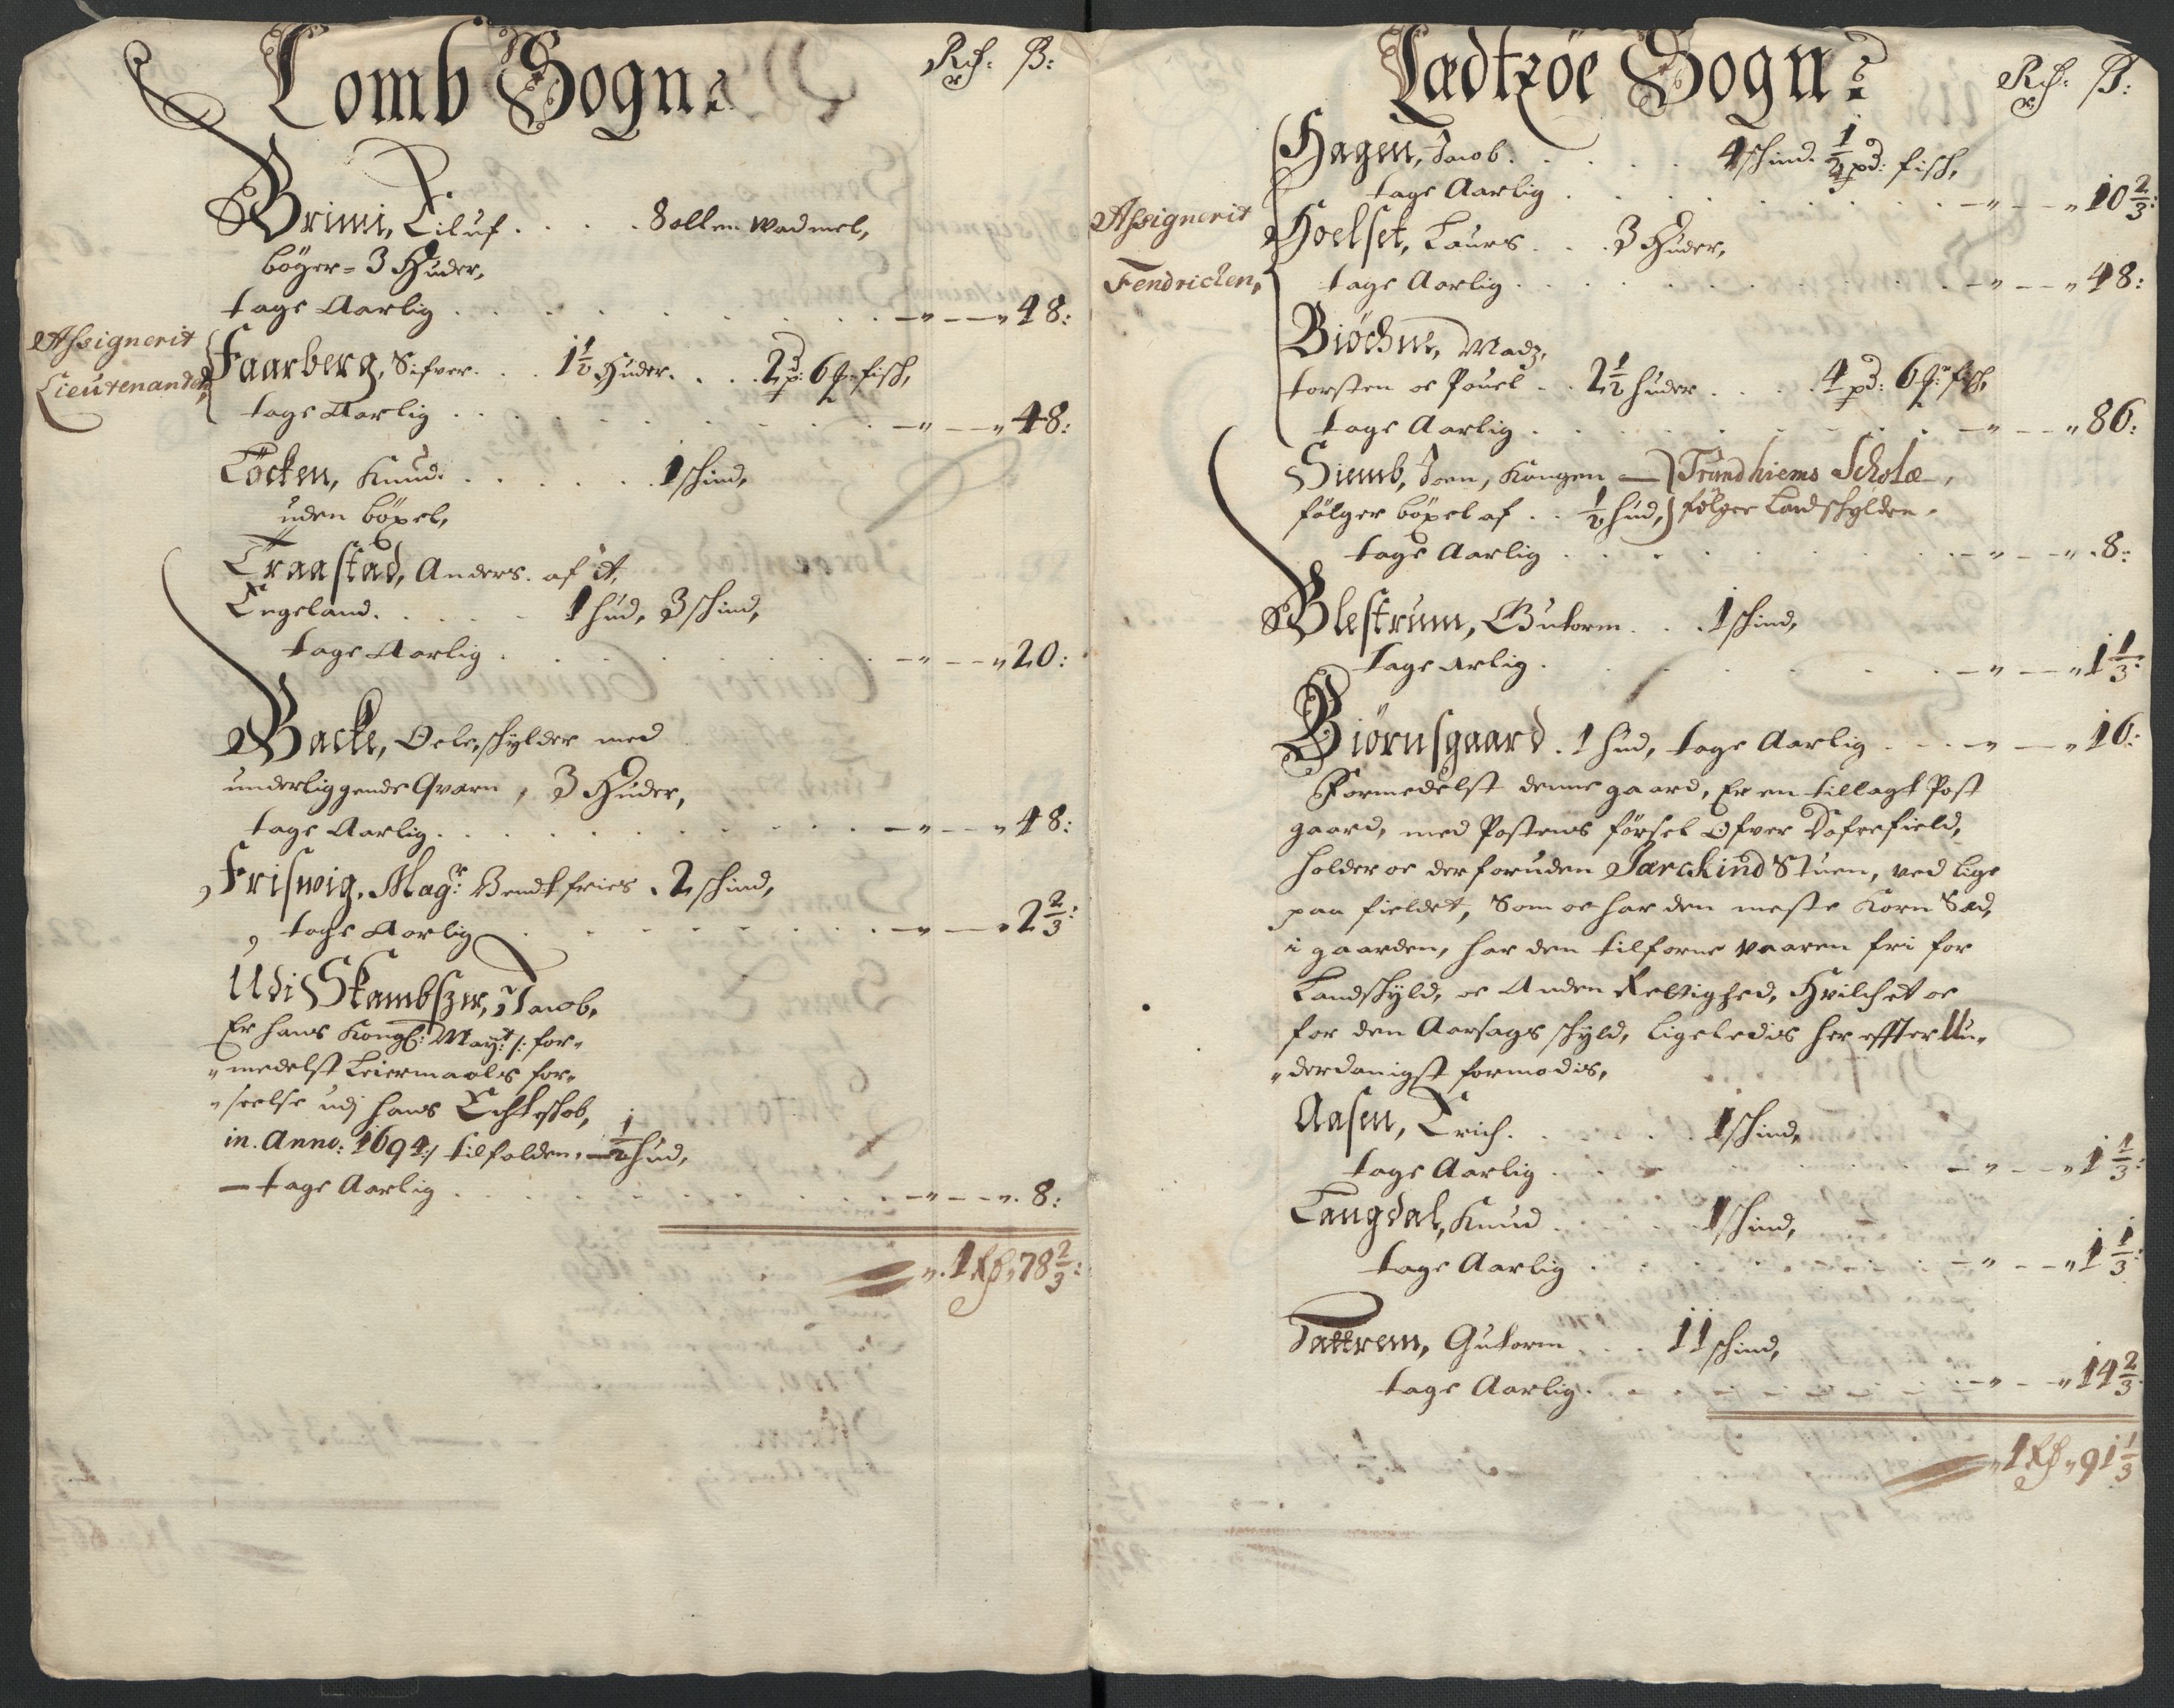 Lomb Sogn:
Rd: ß:
Brimi, Eiluf . . . . 8 allen wadmel,
böger = 3 Huder,
tage Aarlig . . . . 48:
Assignerit
Lieutenanden,
Faarberg, Sifver . . . 1½ Huder . . . 2 pd: 6 fisk,
tage Aarlig . . . . 48:
Löcken, Knud . . . . 1 schind,
uden böxel,
Traastad, Anders. af it,
Engeland . . . . 1 hud, 3 schind,
tage Aarlig . . . . 20:
Backe, Oele, schylder med
underliggende Qvarn, 3 Huder,
tage Aarlig . . . . 48:
Friswig, Magr: Bendt fries . 2 schind,
tage Aarlig . . . . 2⅔:
Udi Skambszer, Jacob,
Er hans Kongl: Mayt: /: for-
medelst Leiermaals for-
seelse udj hans Echteskab,
in Anno: 1694 :/ tilfalden, — ½ hud,
tage Aarlig . . . . 8:
1 Rd 78⅔:
Ladtzöe Sogn:
Rd: ß:
Assignerit
Fendricken,
Hagen, Jacob . . . . 4 schind. ½ pd: fisk,
tage Aarlig . . . . 10⅔:
Hoelset, Laurs . . . 3 Huder,
tage Aarlig . . . . 48:
Biöchne, Madz,
torsten oc Pouel . . 2½ huder . . . 4 pd: 6 fisk,
tage Aarlig . . . . 86:
Siemb, Joen, Kongen — Trundhiems Schole,
fölger böxel af . . ½ hud, fölger Landskylden.
tage Aarlig . . . . 8:
Blestrum, Gutorm . . . 1 schind,
tage arlig . . . . 1⅓:
Biörnsgaard . 1 hud, tage Aarlig . . . 16:
Formedelst denne gaard, Er en tillagt Post
gaard, med Postens försel Ofver Dofrefield,
holder oc der foruden Jærckind Stuen, ved lige
paa fieldet, Som oc har den meste Korn Sæd,
i gaarden, har den tilforne vaaren fri for
Landskyld, oc Anden Rettighed, Hvilchet oc
for den Aarsags skyld, ligeledis her effter Un-
derdanigst formodis,
Aasen, Erich . . . . 1 schind,
tage Aarlig . . . . 1⅓:
Langdal, Knud . . . . 1 schind,
tage Aarlig . . . . 1⅓:
Jattrem, Gutorm . . . 11 schind,
tage Aarlig . . . . 14⅔
1 Rd 91⅓